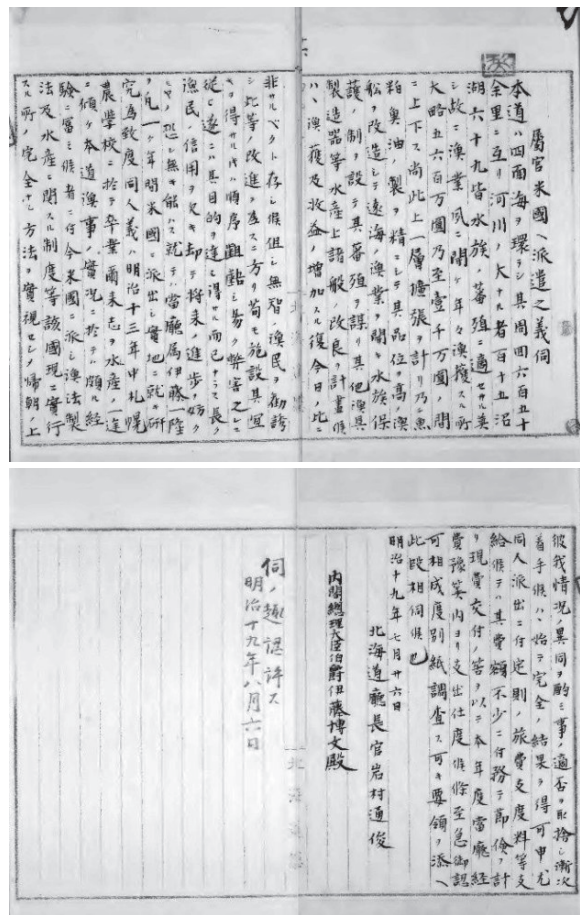 屬官米國ヘ派遣之義伺
本道ハ四面海ヲ環ラシ其周囲六百五十
余里ニ亙リ河川ノ大ナル者百十五沼
湖六十九皆水族ノ蕃殖ニ適セサル莫
シ故ニ漁業夙ニ開ケ年々漁獲スル所
大略五六百万圓乃至壹千万圓ノ間
ニ上下ス尚此上一層擴張ヲ計リ乃シ魚
粕魚油ノ製ヲ精ニシテ其品位ヲ高メ漁
船ヲ改造シテ遠海ノ漁業ヲ開キ水族保
護ノ制ヲ設ケ其蕃殖ヲ謀リ其他漁具
製造器等水産上諸般ノ改良ヲ計畫候
ハヽ漁獲及收益ノ増加スル復今日ノ比ニ
非サルヘクト存シ候但シ無智ノ漁民ヲ勧誘
シ此等ノ改進ヲ為スニ方リ苟モ施設其宜
キヲ得サル片ハ順序齟齬シ易ク弊害之レニ
從ヒ遂ニハ其目的ヲ達シ得サル而已ナラス長ク
漁民ノ信用ヲ欠キ却テ将来ノ進歩ヲ妨ク
ルヤノ恐レ無キ能ハス就テハ當廳属伊藤一隆
ヲ凡一ヶ年間米國ニ派出シ實地ニ就キ研
究為致度同人義ハ明治十三年中札幌
農學校ニ於テ卒業爾来志ヲ水産ノ一途
ニ傾ケ本道漁事ノ實况ニ於テハ頗ル経
驗ニ冨ミ候者ニ付今米國ニ派シ漁法製
法及水産ニ関スル制度等該國現ニ實行
スル所ノ完全ナル方法ヲ實視セシメ帰朝ノ上
彼我情况ノ異同ヲ酌ミ事ノ適否ヲ取捨シ漸次
着手候ハヽ始テ完全ノ結果ヲ得可申尤
同人派出ニ付定則ノ旅費支度料等支
給候テハ其費額不少ニ付務テ節儉ヲ計
リ現費交付ノ筈ヲ以テ本年度當廳経
費豫算内ヨリ支出仕度候條至急御認
可相成度別紙調査ス可キ要領ヲ添ヘ
此段相伺候也
明治十九年七月廿六日
北海道廳長官岩村通俊
内閣總理大臣伯爵伊藤博文殿
伺ノ趣認許ス
明治十九年八月六日